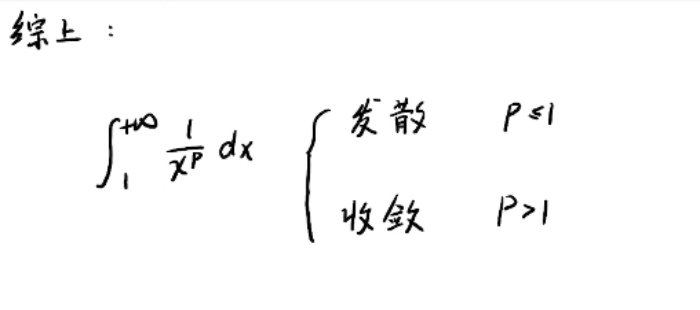 综上：
∫₁^{+∞} 1/x^p dx { 发散 p≤1
收敛 p>1